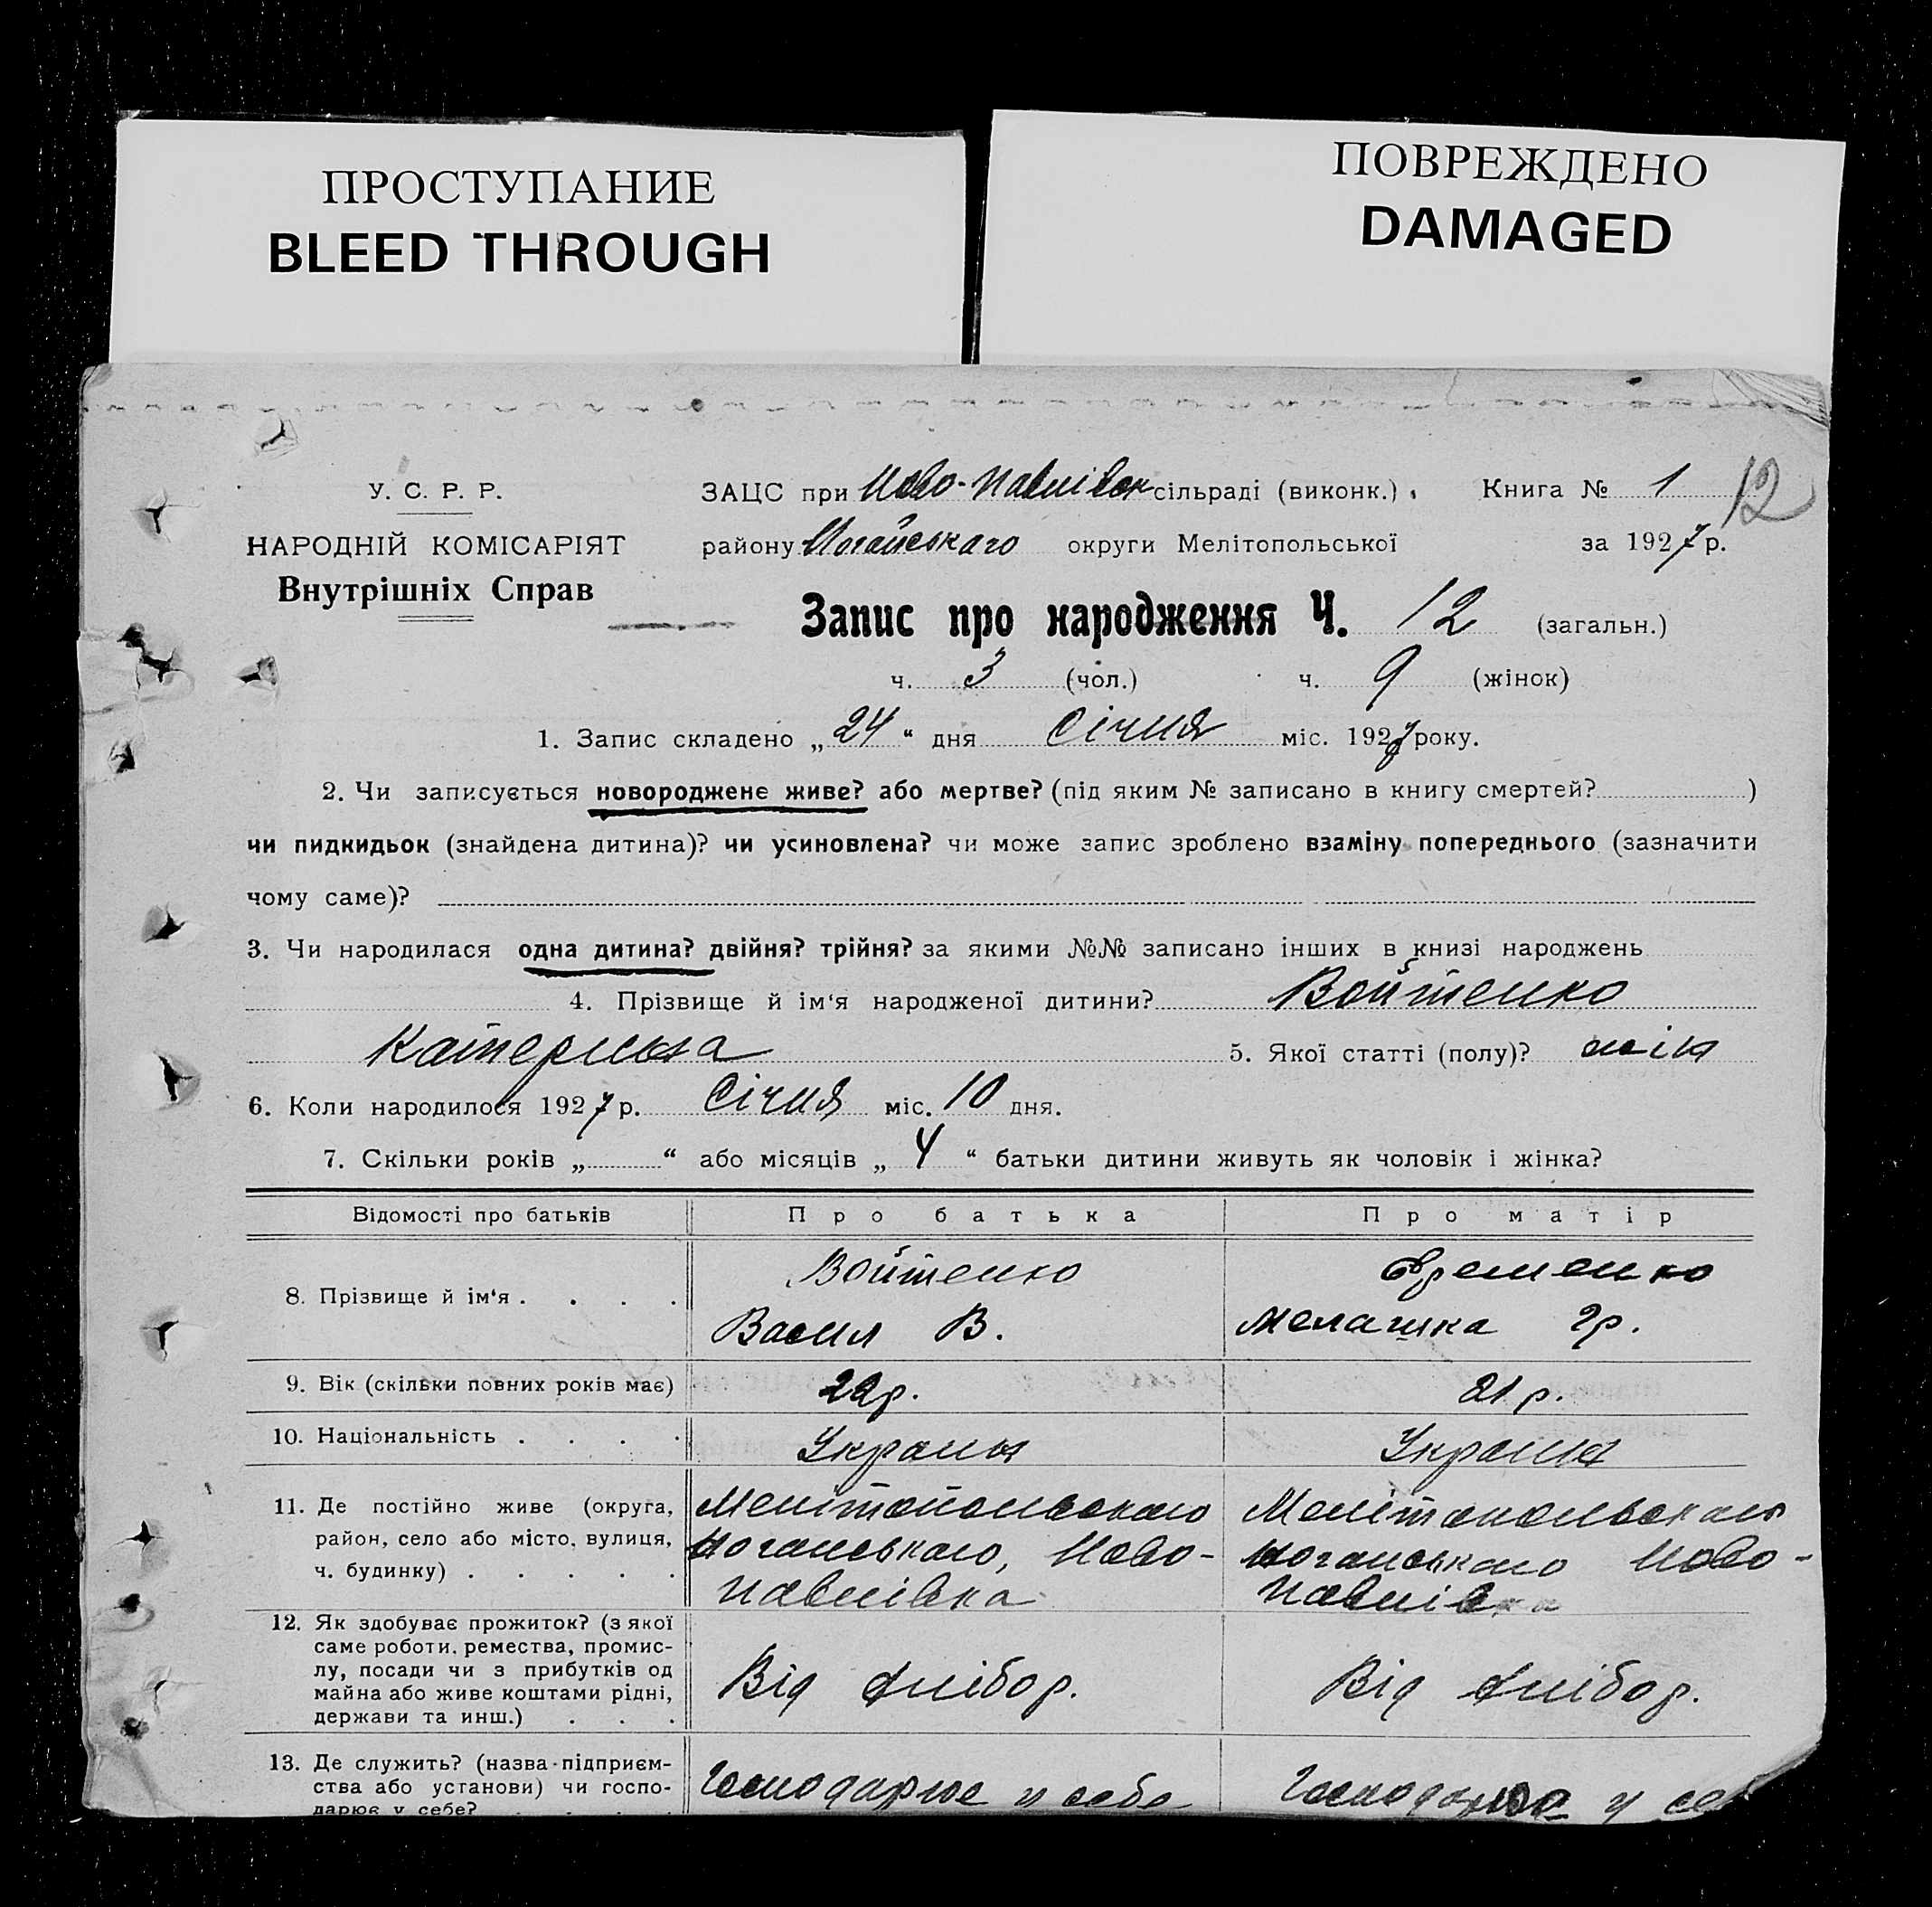 ПРОСТУПАНИЕ
BLEED THROUGH
ПОВРЕЖДЕНО
DAMAGED
У. С. Р. Р.
НАРОДНІЙ КОМІСАРІЯТ
Внутрішніх Справ
ЗАЦС при Ново-Павлівск сільраді (виконк.) Книга № 1 12
району Ногайського округи Мелітопольської за 1927 р.
Запис про народження Ч. 12 (загальн.)
ч. 3 (чол.) ч. 9 (жінок)
1. Запис складено „ 24 “ дня Січня міс. 1927 року.
2. Чи записується новороджене живе? або мертве? (під яким № записано в книгу смертей? )
чи пидкидьок (знайдена дитина)? чи усиновлена? чи може запис зроблено взаміну попереднього (зазначити
чому саме)?
3. Чи народилася одна дитина? двійня? трійня? за якими №№ записано інших в книзі народжень
4. Прізвище й ім‘я народженої дитини? Войтенко
Катерина 5. Якої статті (полу)? жін
6. Коли народилося 1927 р. Січня міс. 10 дня.
7. Скільки років „ “ або місяців „ 4 “ батьки дитини живуть як чоловік і жінка?
Відомості про батьків Про батька Про матір
8. Прізвище й ім‘я . . . . Войтенко Єременко
Васил В. Мелашка Гр.
9. Вік (скільки повних років має) 22 р. 21 р.
10. Національність . . . . Україн Україн
11. Де постійно живе (округа, Мелітопольського Мелітопольського
район, село або місто, вулиця, Ногайського, Ново- Ногайського Ново-
ч. будинку) . . . . . Павлівка Павлівка
12. Як здобуває прожиток? (з якої
саме роботи, ремества, промис-
лу, посади чи з прибутків од Від хлібор. Від хлібор.
майна або живе коштами рідні,
держави та инш.) . . .
13. Де служить? (назва підприєм-
ства або установи) чи госпо- Господарює у себе Господарює у себ
дарює у себе? . . . .